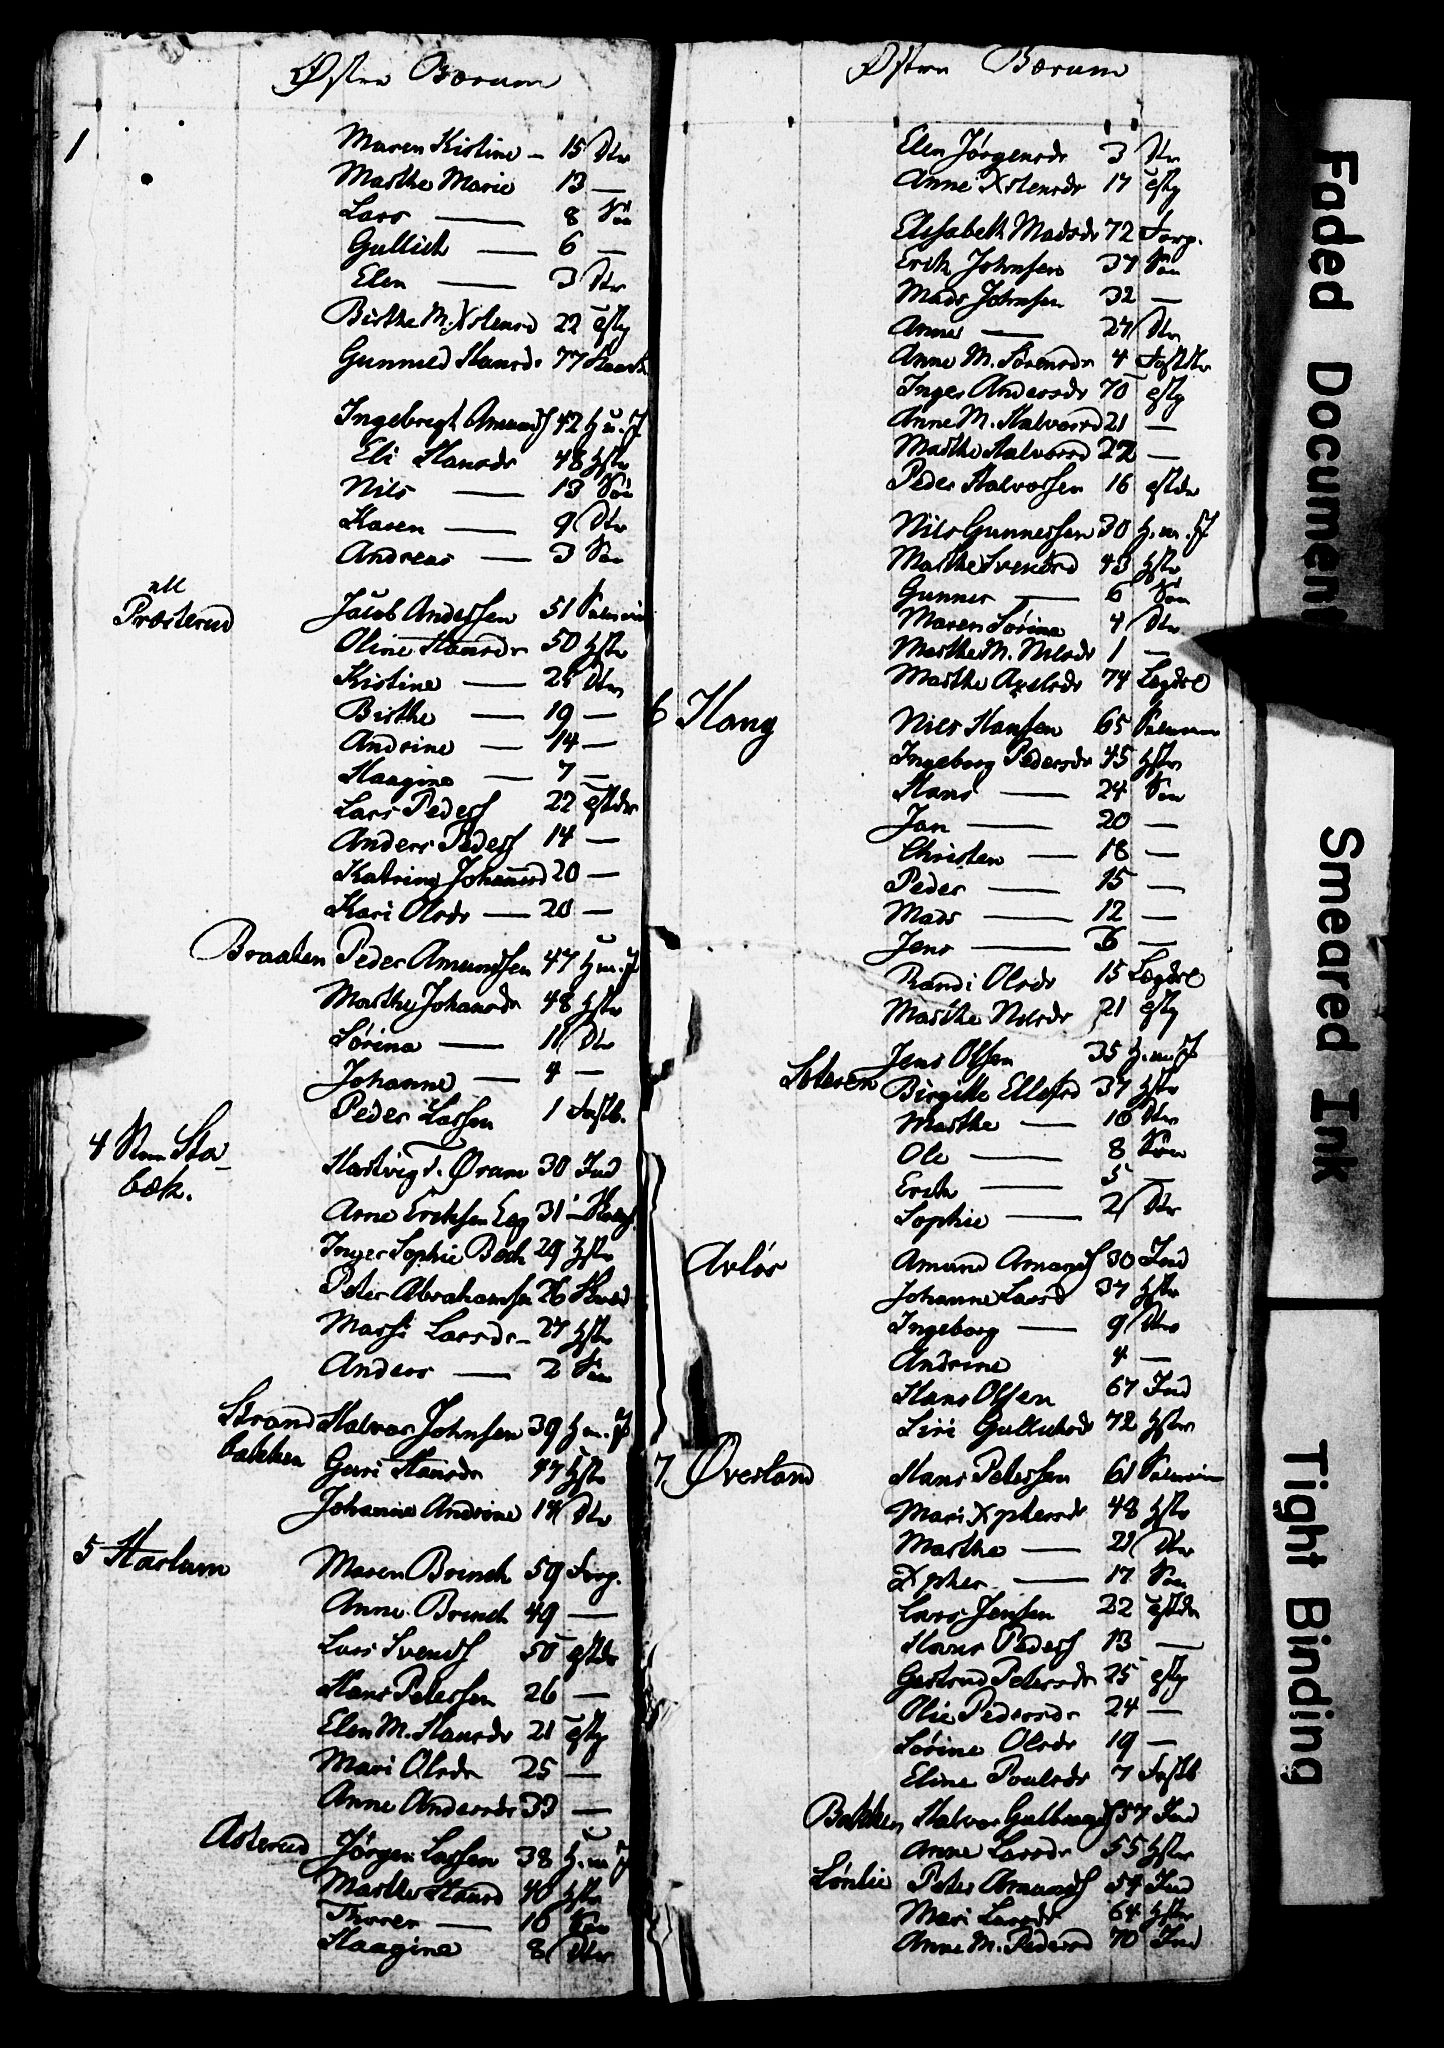 Østre Bærum
1
Maren Kistine - 15 Dtr
Marthe Marie 13 —
Lars — 8 Sön
Gullich — 6 —
Elen — 3 Dtr
Birthe M. Xstensd 22 tstp
Gunnild Hansdr 77
Ingebregt Amunds 42 H.m.J
Eli Hansdr 48 Hstr
Nils — 13 Sön
Karen — 9 Dtr
Andreas — 3 Sön
Præsterud Jacob Andersen 51
Oline Hansdr 50 Hstr
Kistine — 25 Dtr
Birthe — 19 —
Andrine — 14 —
Haagine — 7 —
Lars Peders 22 tstdr
Anders Peders 14 —
Katrine Johansd 20 —
Kari Olsdr — 20 —
Braaten Peder Amundsen 47 H.m.J
Marthe Johansdr 48 Hstr
Sørine — 11 Dtr
Johanne — 4 —
Peder Larsen 1 Fostb.
4 Sta-
bæk.
Hartvig Øram 30 Ind
Arne Ericksen Eeg 31
Inger Sophie Bech 29 Hstr
Peter Abrahamsen 26
Marthe Larsdr - 27 Hstr
Anders — 2 Sön
Strand
bakken
Halvor Johnsen 39 H.m.J
Guri Hansdr 47 Hstr
Johanne Andrine 14 Dtr
5 Haslum
Maren Brinch 59 Forp.
Anne Brinch 49 —
Lars Svends 50 tstdr
Hans Petersen 26 —
Elen M. Hansdr 21 tstp
Mari Olsdr 25 —
Anne Andersdr 33 —
Asterud Jørgen Larsen 38 H.m.J
Marthe Hansd 40 Hstr
Thorer — 10 Sön
Haagine 8 Dtr
Østre Bærum
Elen Jørgensdr 3 Dtr
Anne Xstensdr 17 tstp
Elisabeth Madsdr 72 Forp.
Erik Johnsen 37 Sön
Mads Johnsen 32 —
Anne — 27 Dtr
Anne M. Sørensdr 4 Fostdtr
Inger Andersdr 70 tstp
Anne M. Halvorsd 21 —
Marthe Halvorsd 22 —
Peder Halvorsen 16 tstdr
Nils Gunnersen 30 H.m.J
Marthe Svendsd 43 Hstr
Gunner — 6 Sön
Maren Sørine 4 Dtr
Marthe M. Nilsdr 1 —
Marthe Axelsdr 74 Lægdsl
6 Haug
Nils Hansen 65
Ingeborg Pedersdr 45 Hstr
Hans — 24 Sön
Jan — 20 —
Christen — 18 —
Peder — 15 —
Mads — 12 —
Jens — 6 —
Randi Olsdr 15 Lægdsl
Marthe Nilsdr 21 tstp
Jens Olsen 35 H.m.J
Birgitte Ellefsd 37 Hstr
Marthe — 10 Dtr
Ole — 8 Sön
Erik — 5 —
Sophie — 2 Dtr
Avløs Amund Amunds 30 Ind
Johanne Larsd 37 Hstr
Ingeborg — 9 Dtr
Andrine 4 —
Hans Olsen 67 Ind
Siri Gullichsdr 72 Hstr
7 Øverland Hans Petersen 61
Mari Xphersdr 48 Hstr
Marthe — 21 Dtr
Xpher — 17 Sön
Lars Jensen 22 tstdr
Hans Peders 13 —
Gertrud Petersdr 25 tstp
Olie Pedersdr 24 —
Sørine Olsdr 19 —
Eline Poulsdr 7 Fostb
Bakken Halvor Gulbrands 57 Ind
Anne Larsdr 55 Hstr
Lønlie Peter Amunds 54 Ind
Mari Larsdr 64 Hstr
Anne M. Pedersd 70 Ind
Faded Document
Smeared Ink
Tight Binding